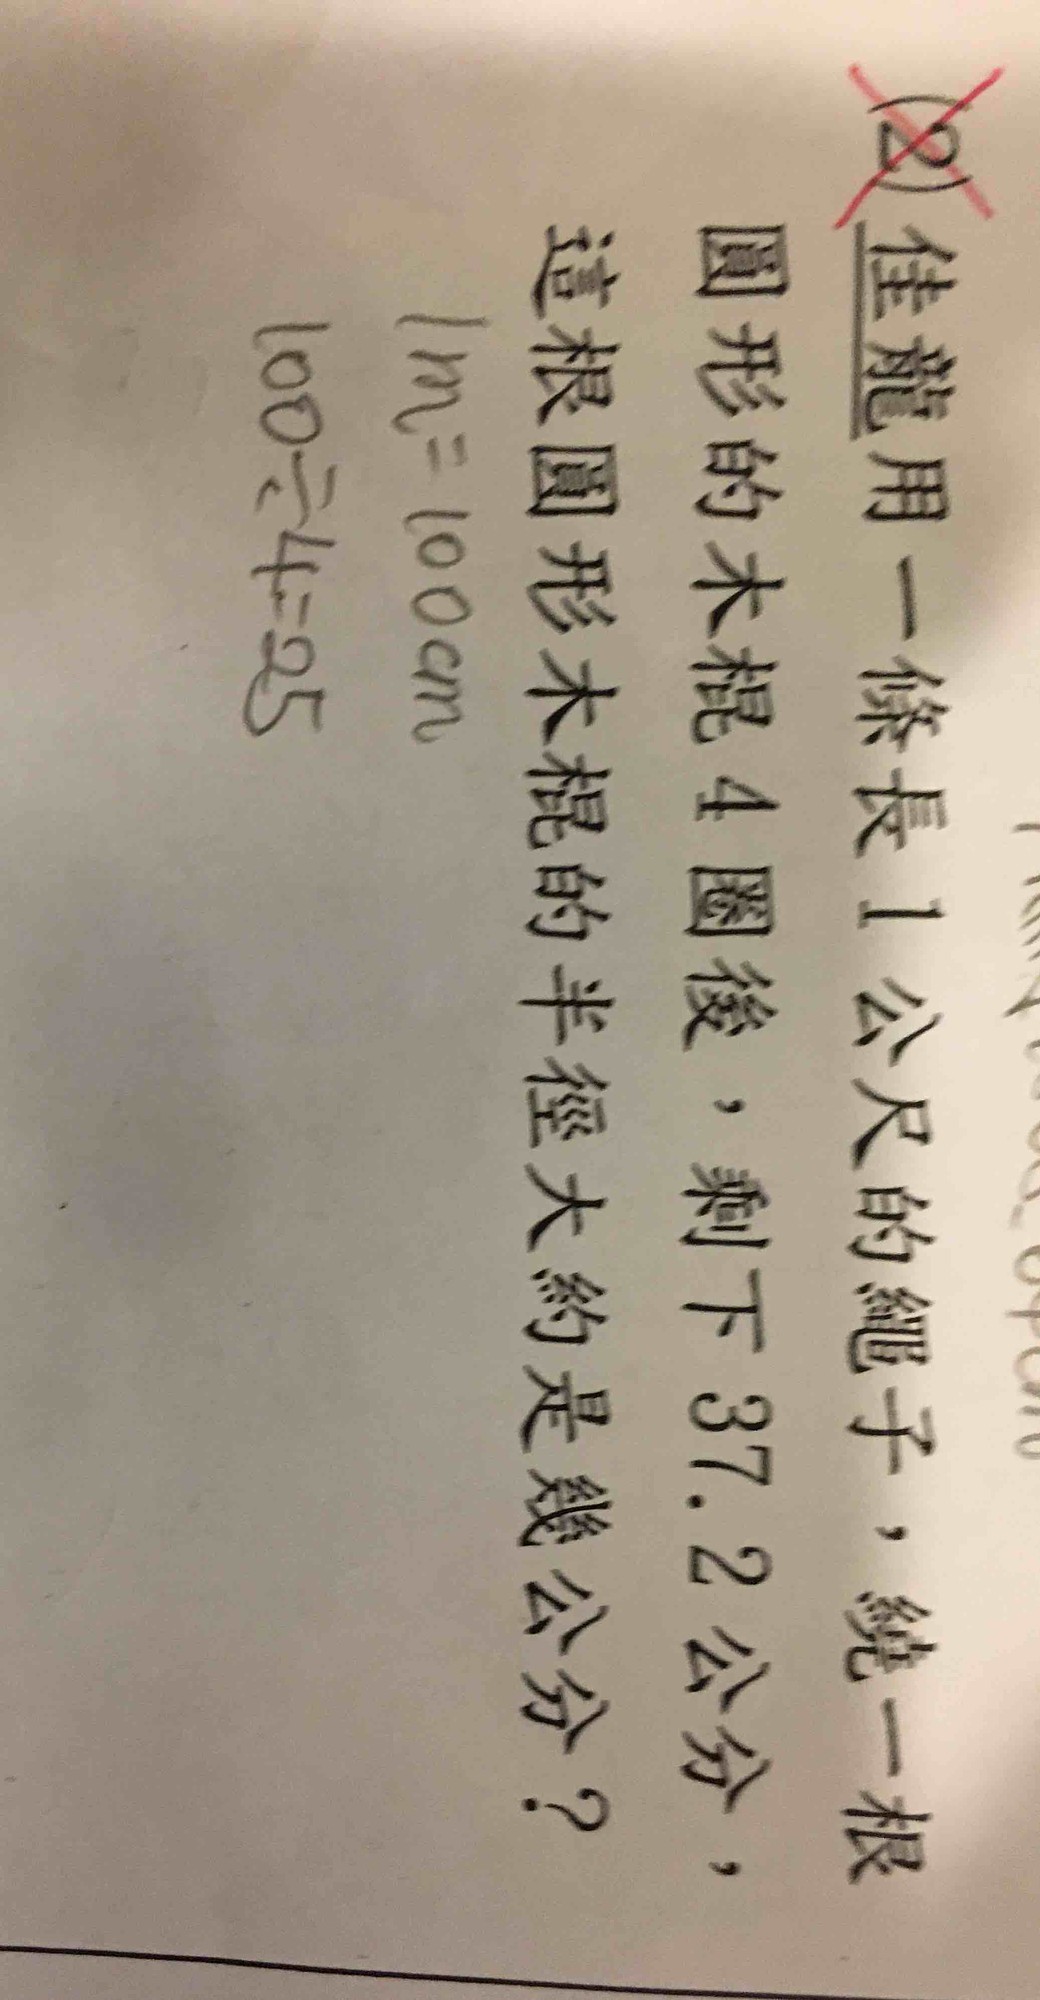 (2)佳龍用一條長1公尺的繩子，繞一根
圓形的木棍4圈後，剩下37.2公分，
這根圓形木棍的半徑大約是幾公分？
1m=100cm
100÷4=25